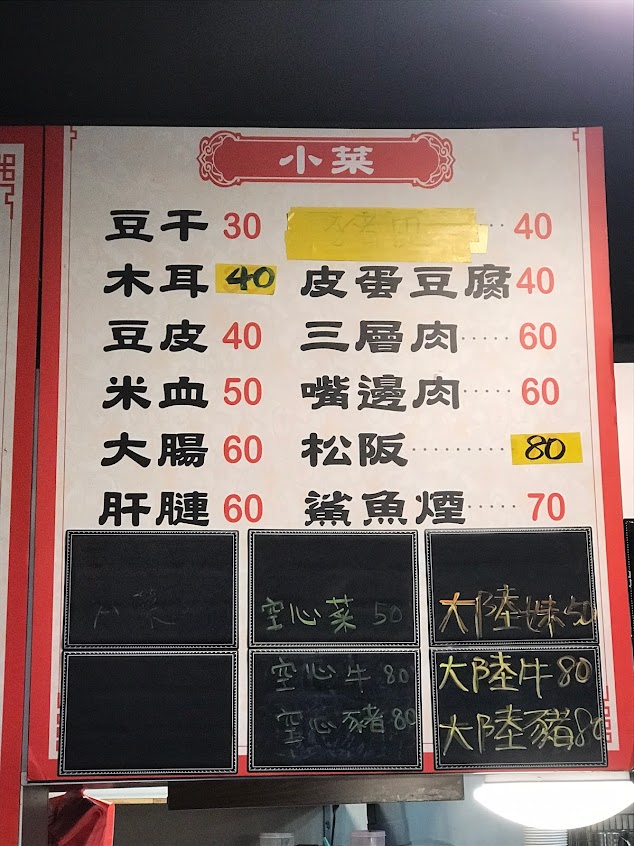 小菜
豆干 30
40
木耳 40
皮蛋豆腐 40
豆皮 40
三層肉 60
米血 50
嘴邊肉 60
大腸 60
松阪 80
肝腱 60
鯊魚煙 70
空心菜 50
大陸妹 50
空心牛 80
大陸牛 80
空心豬 80
大陸豬 80